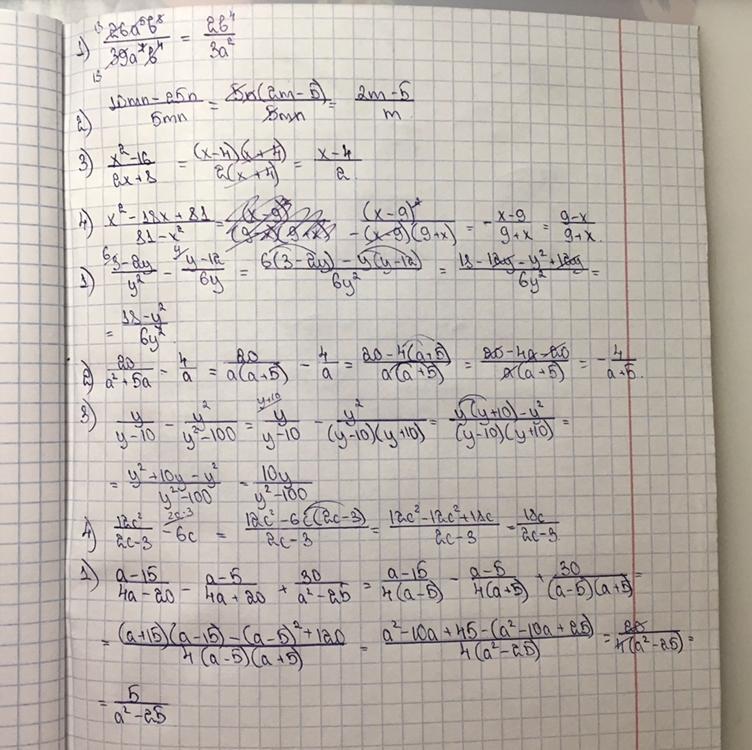 1) \frac{26a^5b^8}{39a^7b^4} = \frac{2b^4}{3a^2}
2) \frac{10mn-25n}{5mn} = \frac{5n(2m-5)}{5mn} = \frac{2m-5}{m}
3) \frac{x^2-16}{2x+8} = \frac{(x-4)(x+4)}{2(x+4)} = \frac{x-4}{2}
4) \frac{x^2-18x+81}{81-x^2} = \frac{(x-9)^2}{-(x-9)(9+x)} = -\frac{x-9}{9+x} = \frac{9-x}{9+x}.
1) \frac{3-2y}{y^2} - \frac{y-12}{6y} = \frac{6(3-2y)-y(y-12)}{6y^2} = \frac{18-12y-y^2+12y}{6y^2} =
= \frac{18-y^2}{6y^2}
2) \frac{20}{a^2+5a} - \frac{4}{a} = \frac{20}{a(a+5)} - \frac{4}{a} = \frac{20-4(a+5)}{a(a+5)} = \frac{20-4a-20}{a(a+5)} = -\frac{4}{a+5}.
3) \frac{y}{y-10} - \frac{y^2}{y^2-100} = \frac{y}{y-10} - \frac{y^2}{(y-10)(y+10)} = \frac{y(y+10)-y^2}{(y-10)(y+10)} =
= \frac{y^2+10y-y^2}{y^2-100} = \frac{10y}{y^2-100}
4) \frac{12c^2}{2c-3} - 6c = \frac{12c^2-6c(2c-3)}{2c-3} = \frac{12c^2-12c^2+18c}{2c-3} = \frac{18c}{2c-3}.
1) \frac{a-15}{4a-20} - \frac{a-5}{4a+20} + \frac{30}{a^2-25} = \frac{a-15}{4(a-5)} - \frac{a-5}{4(a+5)} + \frac{30}{(a-5)(a+5)} =
= \frac{(a+15)(a-15)-(a-5)^2+120}{4(a-5)(a+5)} = \frac{a^2-10a+45-(a^2-10a+25)}{4(a^2-25)} = \frac{20}{4(a^2-25)} =
= \frac{5}{a^2-25}